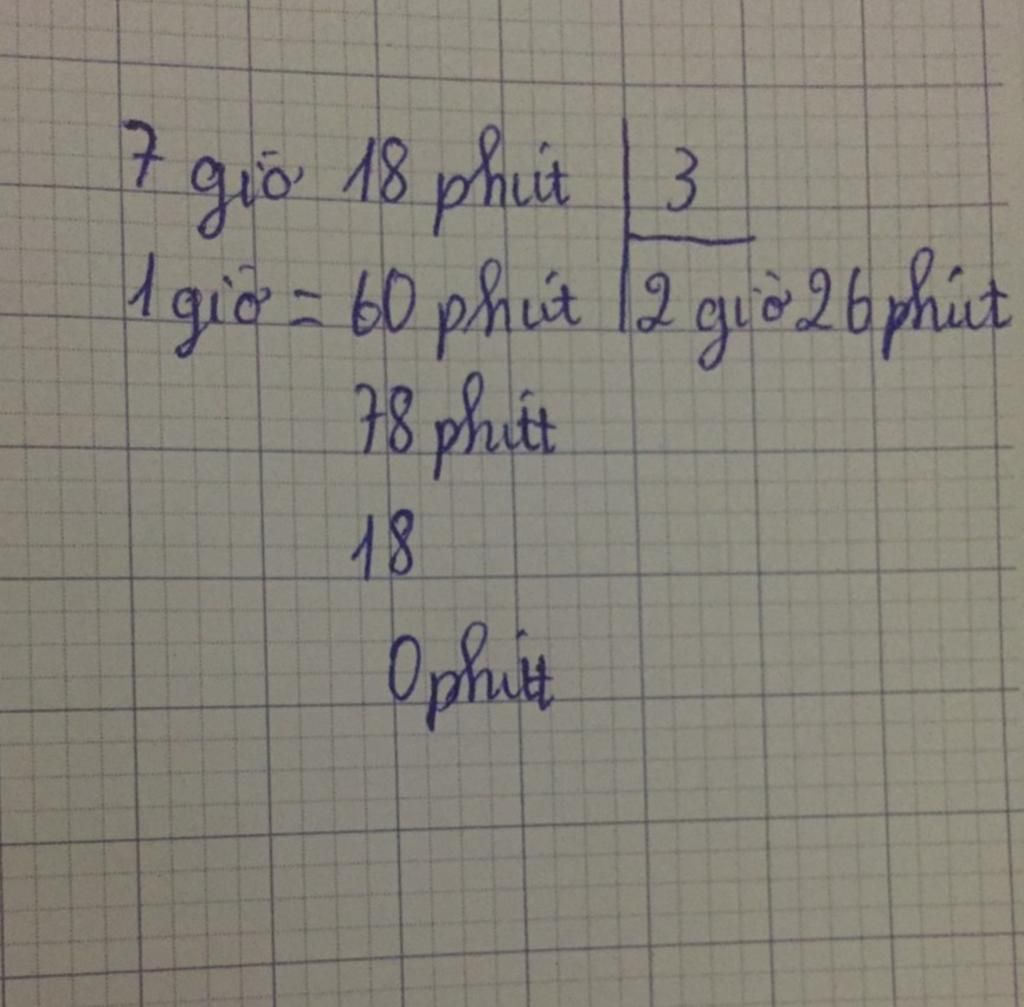 7 giờ 18 phút 3
1 giờ = 60 phút 2 giờ 26 phút
78 phút
18
0 phút